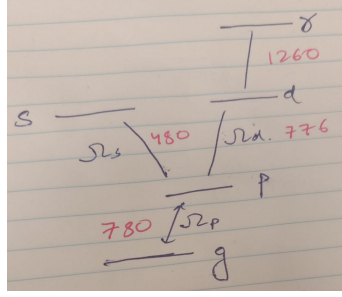 r
1260
s d
Ωs 480 Ωd. 776
p
780 Ωp
g